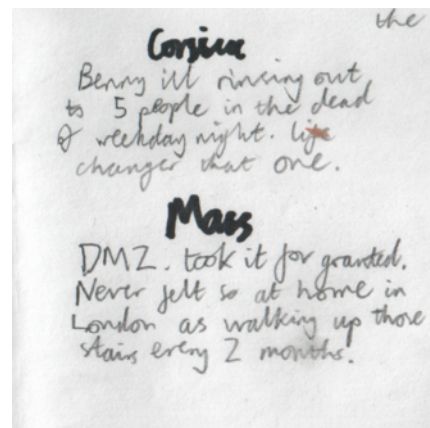 the
Corsica
Benny ill rinsing out
to 5 people in the dead
of weekday night. life
changer that one.
Mass
DMZ. took it for granted.
Never felt so at home in
London as walking up those
stairs every 2 months.